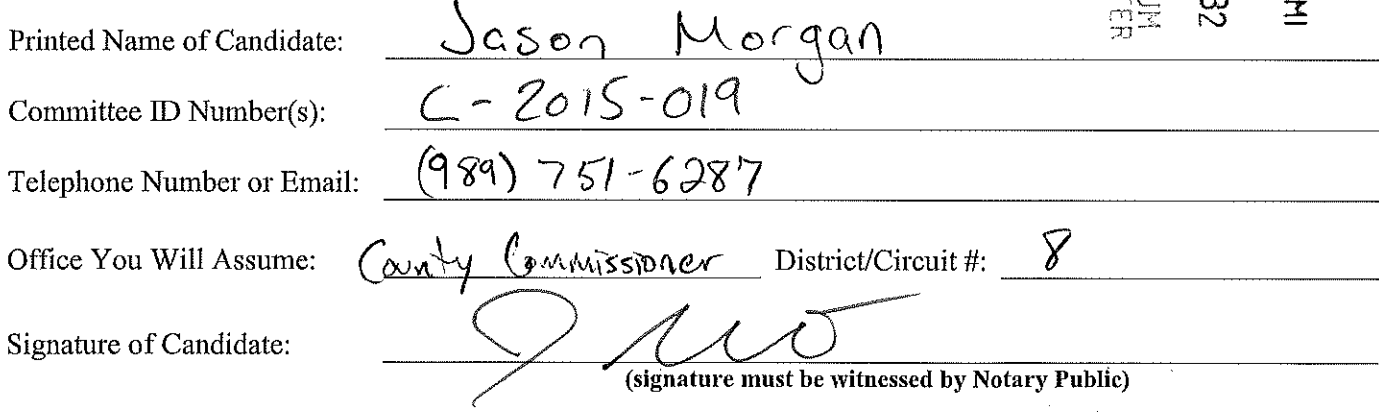 Printed Name of Candidate: Jason Morgan
Committee ID Number(s): C-2015-019
Telephone Number or Email: (989) 751-6287
Office You Will Assume: County Commissioner District/Circuit #: 8
Signature of Candidate:
(signature must be witnessed by Notary Public)
32
MI